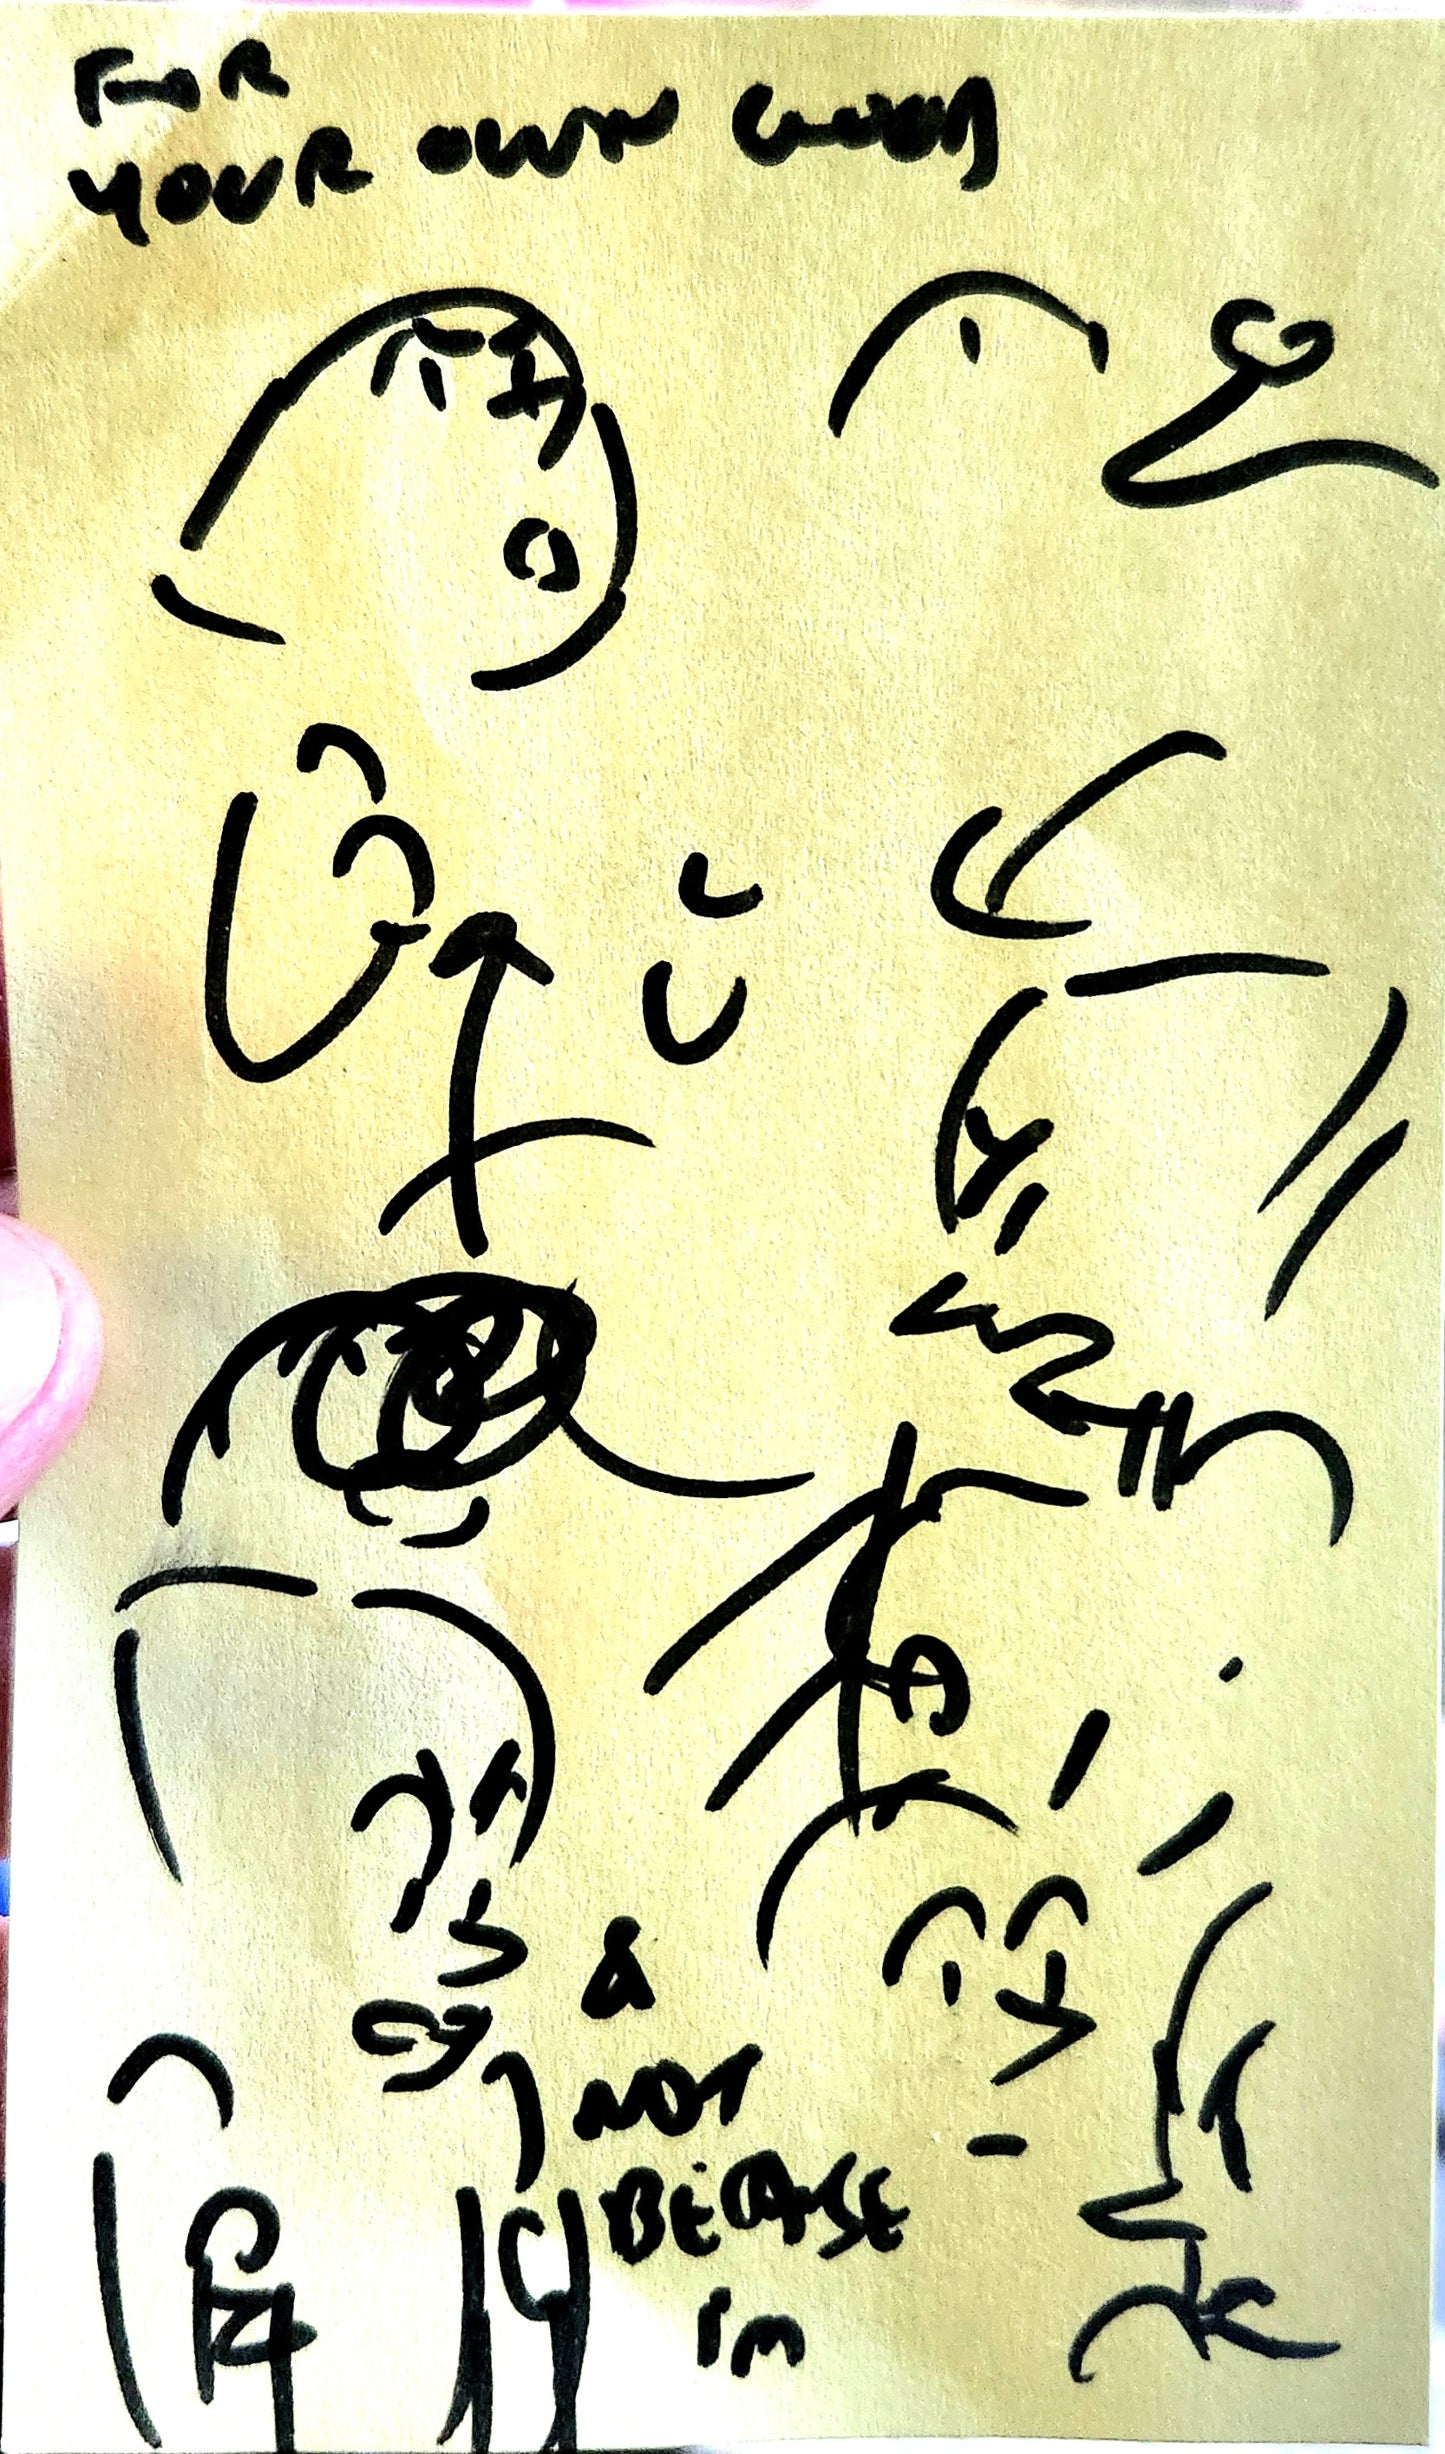 FOR
YOUR OWN GOOD
&
NOT
BECAUSE
Im